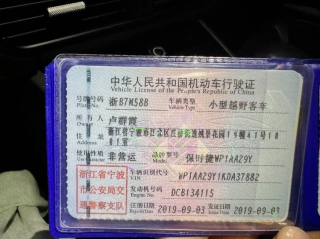 中华人民共和国机动车行驶证
Vehicle License of the People's Republic of China
号牌号码 浙B7M588 车辆类型 小型越野客车
Plate No. Vehicle Type
所有人 卢群霞
Owner
住址 浙江省宁波市江北区
Address
使用性质 非营运 品牌型号 保时捷WP1AA29Y
浙江省宁波 车辆识别代号 WP1AA29Y1KDA37882
VIN
市公安局交 发动机号码 DCB134115
Engine No.
通警察支队 注册日期 2019-09-03 发证日期 2019-09-03